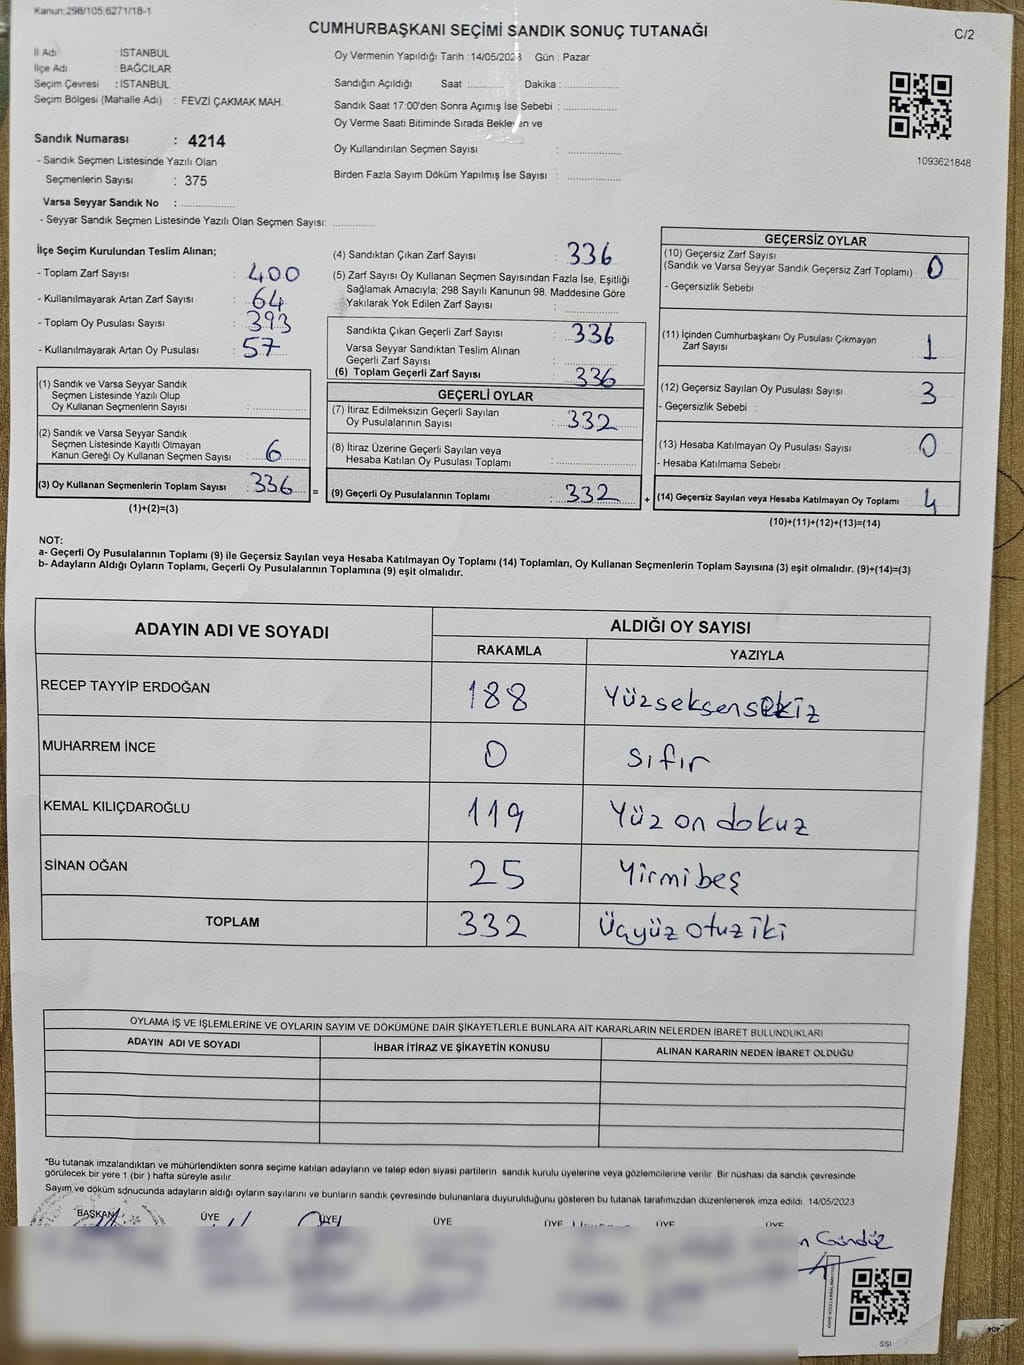 Kanun:298/105,6271/18-1
CUMHURBAŞKANI SEÇİMİ SANDIK SONUÇ TUTANAĞI
C/2
İl Adı : İSTANBUL
İlçe Adı : BAĞCILAR
Seçim Çevresi : İSTANBUL
Seçim Bölgesi (Mahalle Adı) : FEVZİ ÇAKMAK MAH.
Sandık Numarası : 4214
- Sandık Seçmen Listesinde Yazılı Olan
Seçmenlerin Sayısı : 375
Varsa Seyyar Sandık No :
- Seyyar Sandık Seçmen Listesinde Yazılı Olan Seçmen Sayısı:
Oy Vermenin Yapıldığı Tarih : 14/05/2023 Gün : Pazar
Sandığın Açıldığı Saat : Dakika :
Sandık Saat 17:00'den Sonra Açımış İse Sebebi :
Oy Verme Saati Bitiminde Sırada Bekleyen ve
Oy Kullandırılan Seçmen Sayısı :
Birden Fazla Sayım Döküm Yapılmış İse Sayısı :
1093621848
İlçe Seçim Kurulundan Teslim Alınan;
- Toplam Zarf Sayısı : 400
- Kullanılmayarak Artan Zarf Sayısı : 64
- Toplam Oy Pusulası Sayısı : 393
- Kullanılmayarak Artan Oy Pusulası : 57
(1) Sandık ve Varsa Seyyar Sandık
Seçmen Listesinde Yazılı Olup
Oy Kullanan Seçmenlerin Sayısı :
(2) Sandık ve Varsa Seyyar Sandık
Seçmen Listesinde Kayıtlı Olmayan
Kanun Gereği Oy Kullanan Seçmen Sayısı : 6
(3) Oy Kullanan Seçmenlerin Toplam Sayısı : 336 =
(1)+(2)=(3)
(4) Sandıktan Çıkan Zarf Sayısı : 336
(5) Zarf Sayısı Oy Kullanan Seçmen Sayısından Fazla İse, Eşitliği
Sağlamak Amacıyla; 298 Sayılı Kanunun 98. Maddesine Göre
Yakılarak Yok Edilen Zarf Sayısı :
Sandıkta Çıkan Geçerli Zarf Sayısı : 336
Varsa Seyyar Sandıktan Teslim Alınan
Geçerli Zarf Sayısı :
(6) Toplam Geçerli Zarf Sayısı : 336
GEÇERLİ OYLAR
(7) İtiraz Edilmeksizin Geçerli Sayılan
Oy Pusulalarının Sayısı : 332
(8) İtiraz Üzerine Geçerli Sayılan veya
Hesaba Katılan Oy Pusulası Toplamı :
(9) Geçerli Oy Pusulalarının Toplamı : 332 +
GEÇERSİZ OYLAR
(10) Geçersiz Zarf Sayısı
(Sandık ve Varsa Seyyar Sandık Geçersiz Zarf Toplamı) : 0
- Geçersizlik Sebebi :
(11) İçinden Cumhurbaşkanı Oy Pusulası Çıkmayan
Zarf Sayısı : 1
(12) Geçersiz Sayılan Oy Pusulası Sayısı : 3
- Geçersizlik Sebebi :
(13) Hesaba Katılmayan Oy Pusulası Sayısı : 0
- Hesaba Katılmama Sebebi :
(14) Geçersiz Sayılan veya Hesaba Katılmayan Oy Toplamı : 4
(10)+(11)+(12)+(13)=(14)
NOT:
a- Geçerli Oy Pusulalarının Toplamı (9) ile Geçersiz Sayılan veya Hesaba Katılmayan Oy Toplamı (14) Toplamları, Oy Kullanan Seçmenlerin Toplam Sayısına (3) eşit olmalıdır. (9)+(14)=(3)
b- Adayların Aldığı Oyların Toplamı, Geçerli Oy Pusulalarının Toplamına (9) eşit olmalıdır.
ADAYIN ADI VE SOYADI ALDIĞI OY SAYISI
RAKAMLA YAZIYLA
RECEP TAYYİP ERDOĞAN 188 Yüzseksensekiz
MUHARREM İNCE 0 sıfır
KEMAL KILIÇDAROĞLU 119 Yüz on dokuz
SİNAN OĞAN 25 Yirmibeş
TOPLAM 332 Üçyüz otuz iki
OYLAMA İŞ VE İŞLEMLERİNE VE OYLARIN SAYIM VE DÖKÜMÜNE DAİR ŞİKAYETLERLE BUNLARA AİT KARARLARIN NELERDEN İBARET BULUNDUKLARI
ADAYIN ADI VE SOYADI İHBAR İTİRAZ VE ŞİKAYETİN KONUSU ALINAN KARARIN NEDEN İBARET OLDUĞU
*Bu tutanak imzalandıktan ve mühürlendikten sonra seçime katılan adayların ve talep eden siyasi partilerin sandık kurulu üyelerine veya gözlemcilerine verilir. Bir nüshası da sandık çevresinde
görülecek bir yere 1 (bir ) hafta süreyle asılır.
Sayım ve döküm sonucunda adayların aldığı oyların sayılarını ve bunların sandık çevresinde bulunanlara duyurulduğunu gösteren bu tutanak tarafımızdan düzenlenerek imza edildi. 14/05/2023
BAŞKAN ÜYE ÜYE ÜYE ÜYE ÜYE ÜYE
Gündüz
SSI